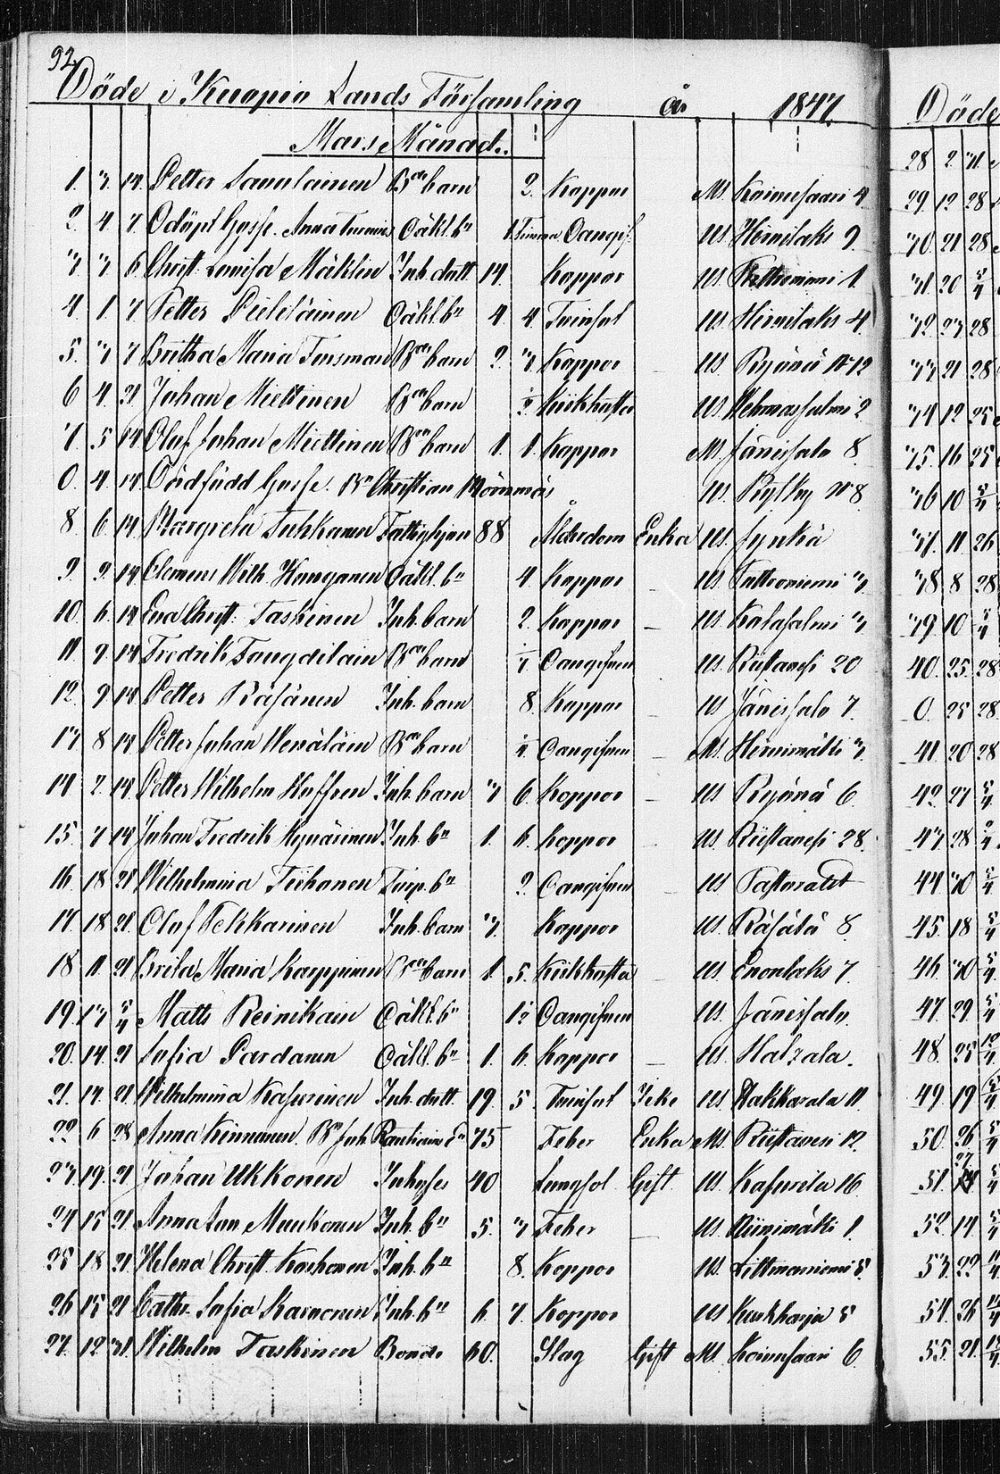 92.
Döde i Kuopio Lands Församling år 1847
Mars Månad.
1. 3 14 Petter Savolainen Bde barn 2. Koppor M. Koivusaari 4
2. 4 7 Odöpt Gosse Anna Däkt. bn 1 Timma Oangif. M. Hirvilaks 9.
3 3 6 Christ. Lovisa Mäklin Inh. dott 14. Koppor M. 1
4 1 7 Petter Pitkläinen Däkt. bn 4. 4. Tvinsot M. Hirvilaks 4
5. 3 7 Britha Maria Forsman Bde barn 2. 3. Koppor M. Ryönä N 12
6 4. 21 Johan Miettinen Bde barn Kikhosta M. 2
7. 5 14 Oluf Johan Miettinen Bde barn 1. 1. Koppor M. Jänissalo 8.
0. 4. 14. Dödfödd Gosse. Bn Christian M. N 8.
8. 6 14 Margreta Tuhkanen Fattighjon 88 Ålderdom Enka M. Jynkä
9. 9. 14 Clemens Wilh. Kanganen Däkt. bn 4. Koppor – M. 3
10. 6. 14 Eva Christ. Taskinen Inh. barn 2. Koppor – M. Kalasalmi 3
11 9. 14 Fredrik Bde barn Oangifven – M. Riistavesi 20
12. 9 14 Petter Räsänen Inh. barn 8. Koppor – M. Jänissalo 7.
13 8 14 Petter Johan Wenäläin Bde barn Oangifven – M. Hirvimäki 3.
14 2. 14 Petter Wilhelm Inh. barn 3 6. Koppor – M. Ryönä 6.
15. 7 14 Johan Fredrik Hynninen Inh. bn 1. 6. Koppor – M. Riistavesi 28.
16. 18 21 Wilhelmina Tiihonen Torp. bn 2. Oangifven – M Pastoratet
17. 18 21. Oluf Pekkarinen Inh. barn 3. Koppor M. Räsälä 8.
18 11 21 Brita Maria Karppinen Bde barn 1. 5. Kikhosta – M. Enonlaks 7.
19. 13 5/4 Matts Reinikain Däkt. bn Oangifven M. Jänissalo.
20. 14. 21 Sofia Pardanen Däkt. bn 1. 6. Koppor – M. Halzala.
21. 14. 21 Wilhelmina Inh. dott. 19. 5. Tvinsot Icke M. Hakkarala 11.
22 6 28 Anna Kinnunen. Bn Joh Rautiains En 75 Feber Enka M. Riistavesi 12.
23. 19. 21 Johan Ukkonen Inhyses 40 Lungsot Gift. M. Kasurila 16.
24 15 21. Anna Muukonen Inh. bn 5. 3 Feber – M. 1
25 18 21. Helena Christ. Korhonen Inh. bn 8. Koppor M. Litmaniemi 5.
26 15 21 Cathr. Sofia Karvonen Inh. bn 6 7. Koppor M Kurkharju 5
27. 12 31. Wilhelm Toiskinen Bonde 60. Slag Gift M. Koivusaari 6.
Döde
28 2 31
29. 12 28
30 21 28
31 20 5/4
32. 23 28
33 21 28
34 12 25
35. 16 25
36 10 5/4
37. 11 26
38 8 28
39 10 5/4
40. 25. 28
0. 25 28
41 20 28
42. 27 5/4
43 28
44 30 5/4
45. 18 5/4
46 30 5/4
47. 29 5/4
48. 25
49. 19 5/4
50. 26 5/4
51.
52. 14 5/4
53. 22
54. 26
55. 21.